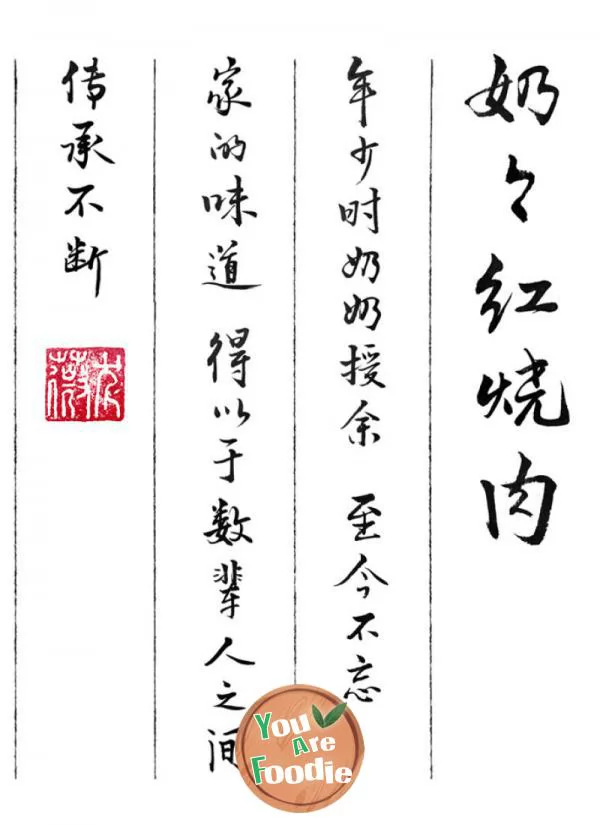 奶々红烧肉
年少时奶奶授余 至今不忘
家的味道 得以于数辈人之间
传承不断
You
Are
Foodie